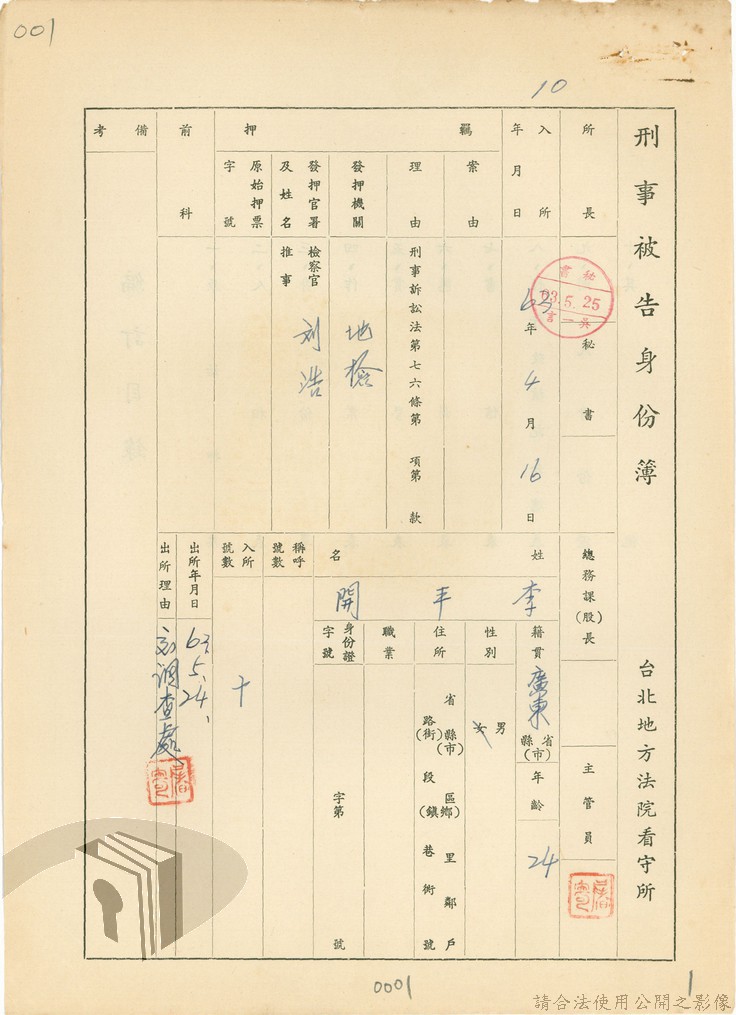 001
10
刑事被告身份簿
台北地方法院看守所
所長
秘書
63.5.25
總務課(股)長
主管員
入所年月日
63年4月16日
羈押
案由
理由
刑事訴訟法第七六條第 項第 款
發押機關
地檢
發押官署及姓名
檢察官
推事
刘浩
原始押票字號
前科
備考
姓名
李丰開
籍貫
廣東
省縣(市)
年齡
24
性別
男女
住所
省縣(市)區鄉(鎮)里鄰戶
路(街)段巷衖號
職業
身份證字號
字第 號
稱呼號數
入所號數
十
出所年月日
63.5.24.
出所理由
調查處
0001
1
請合法使用公開之影像